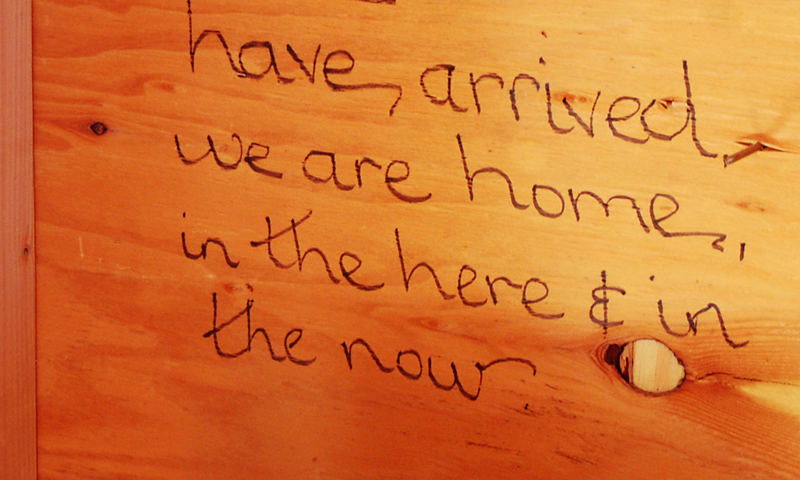 have, arrived,
we are home,
in the here & in
the now.